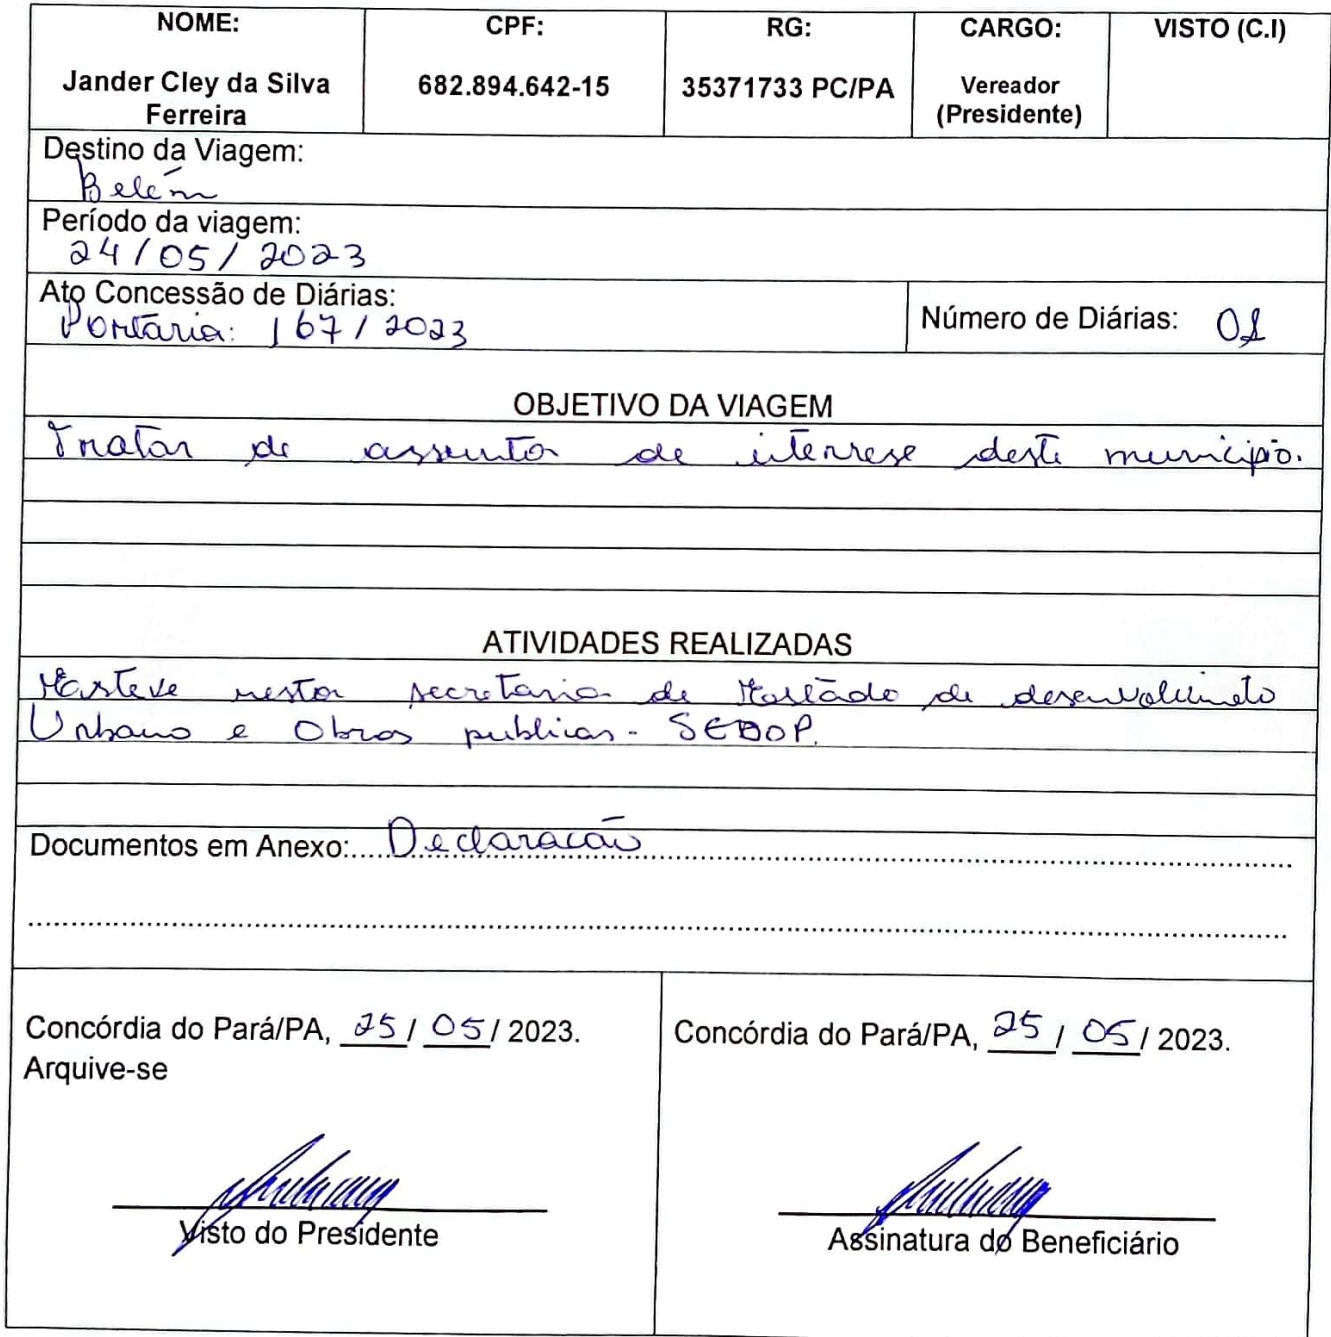 NOME: CPF: RG: CARGO: VISTO (C.I)
Jander Cley da Silva 682.894.642-15 35371733 PC/PA Vereador
Ferreira (Presidente)
Destino da Viagem:
Belém
Período da viagem:
24/05/2023
Ato Concessão de Diárias:
Portaria: 167/2023 Número de Diárias: 01
OBJETIVO DA VIAGEM
Tratar de assunto de iterrese deste municipio.
ATIVIDADES REALIZADAS
Esteve nesta secretaria de Estado de desenvolvimeto
Urbano e Obras publicas - SEDOP.
Documentos em Anexo: Declaracão
Concórdia do Pará/PA, 25/05/2023. Concórdia do Pará/PA, 25/05/2023.
Arquive-se
Visto do Presidente Assinatura do Beneficiário